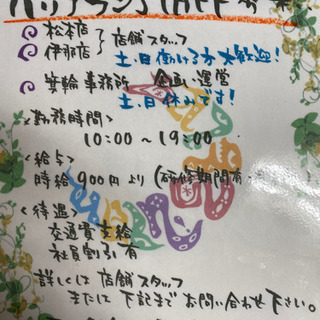 松本店 店舗スタッフ
伊那店 土、日働ける方大歓迎!
箕輪事務所 企画・運営
土、日休みです!
<勤務時間>
10:00~19:00
<給与>
時給900円より(研修期間有
<待遇>
交通費支給
社員割引有
詳しくは店舗スタッフ
または下記までお問い合わせ下さい。